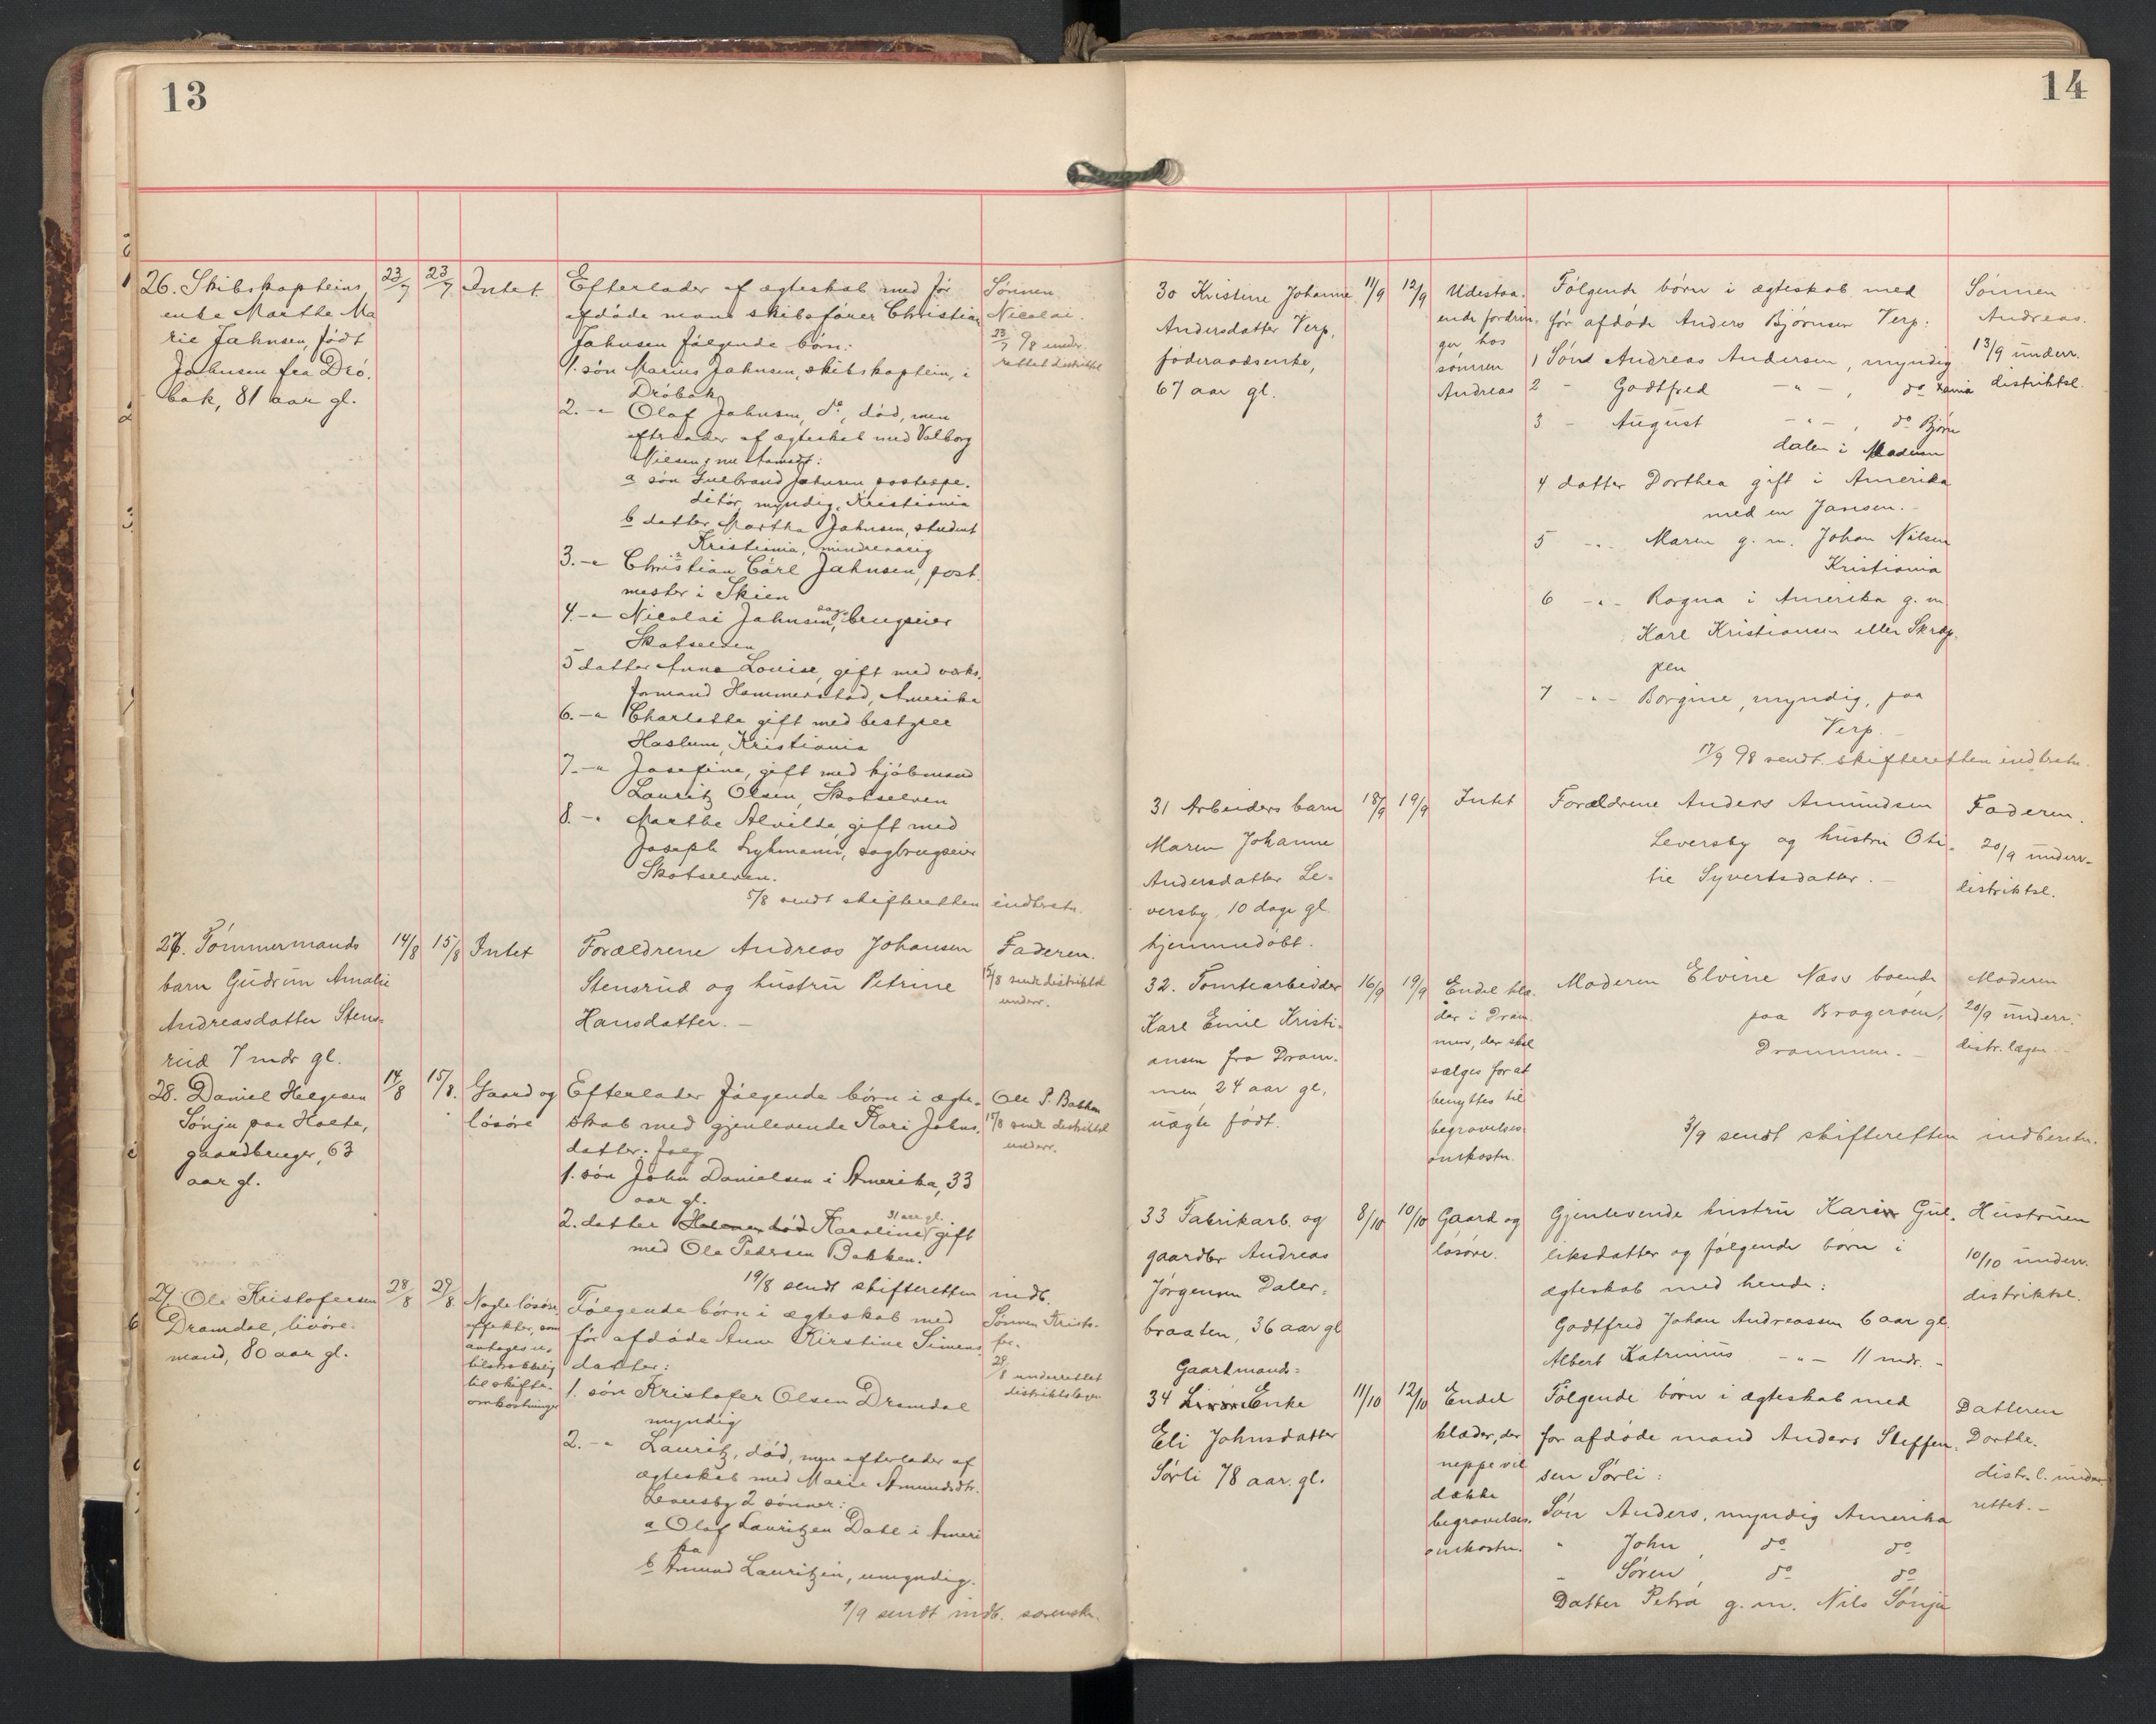 13
26. Skibskapteins
enke Marthe Ma
rie Jahnsen, født
Jahnsen fra Drø.
bak, 81 aar gl.
23/7
23/7
Intet
Efterlader af ægteskab med før
afdøde mand skibsfører Christian
Jahnsen følgende børn:
1. søn Marius Jahnsen, skibskaptein, i
Drøbak
2. -"- Olaf Jahnsen, do, død, men
efterlader af ægteskab med Valborg
Nilsen,
a søn Gulbrand Jahnsen postexpe.
ditør, myndig, Kristiania
b datter Martha Jahnsen, student
Kristiania, mindreaarig
3. -"- Christian Carl Jahnsen, post.
mester i Skien
4. -"- Nicolai Jahnsen, sagbrugseier
Skotselven
5 datter Anna Louise, gift med værks.
formand Hammerstad, Amerika
6. -"- Charlotte gift med bestyrer
Haslum, Kristiania
7. -"- Josefine, gift med kjøbmand
Lauritz Olsen, Skotselven
8. -"- Marthe Alvilde, gift med
Joseph Lykmann, sagbrugseier
Skotselven.
5/8 sendt skifteretten indbretn.
Sønnen
Nicolai.
23/7 98 underr.
rettet distriktsl
27. Tømmermands
barn Gudrun Amalie
Andreasdatter Stens=
rud 7 mdr gl.
14/8
15/8
Intet
Forældrene Andreas Johansen
Stensrud og hustru Petrine
Hansdatter. -
Faderen.
15/8 sendt distriktsl
underr.
28. Daniel Helgesen
Sønju paa Holte,
gaardbruger, 63
aar gl.
14/8
15/8.
Gaard og
løsøre
Efterlader følgende børn i ægte=
skab med gjenlevende Kari Johns.
datter: følg
1. søn John Danielsen i Amerika, 33
aar gl.
2. datter Helene død Karoline 31 aar gl. gift
med Ole Pedersen Bakken.
19/8 sendt skifteretten indb.
Ole P. Bakken
15/8 sendt distriktsl
underr.
29. Ole Kristofersen
Dramdal, livøre=
mand, 80 aar gl.
28/8
29/8.
Nogle løsøre
effekter, som
antages u.
tilstrækkelig
til skifte.
omkostninger
Følgende børn i ægteskab med
før afdøde Anne Kirstine Simens
datter:
1. søn Kristofer Olsen Dramdal
myndig
2. -"- Lauritz, død, men efterlader af
ægteskab med Marie Amundsdtr.
Leversby 2 sønner:
a Olaf Lauritzen Dahl i Ameri
ka
b Amund Lauritzen, umyndig.
9/9 sendt indb. sorenskr.
Sønnen Kristo-
fer.
29/8 underrettet
distriktslægen
14
30 Kristine Johanne
Andersdatter Verp,
føderaadsenke,
67 aar gl.
11/9
12/9
Udestaa.
ende fordrin.
ger hos
sønnen
Andreas
Følgende børn i ægteskab med
før afdøde Anders Bjørnsen Verp:
1 Søn Andreas Andersen, myndig
2 - Godtfred -"-, do Xania
3 - August -"-, do Bjørn
dalen i Modum
4 datter Dorthea gift i Amerika
med en Jansen. -
5 -"- Maren g. m. Johan Nilsen
Kristiania
6 -"- Ragna i Amerika g. m.
Karl Kristiansen eller Skrep.
pen
7 -"- Borgine, myndig, paa
Verp. -
17/9 98 sendt skifteretten indbretn.
Sønnen
Andreas.
13/9 underr.
distriktsl.
31 Arbeiders barn
Maren Johanne
Andersdatter Le=
versby, 10 dage gl
hjemmedøbt.
18/9
19/9
Intet
Forældrene Anders Amundsen
Leversby og hustru Oti.
lie Syvertsdatter. -
Faderen.
20/9 underr.
distriktsl.
32. Tomtearbeider
Karl Emil Kristi.
ansen fra Dram.
men, 24 aar gl.
uægte født.
16/9
19/9
Endel klæ.
der i Dram.
men, der skal
sælges for at
benyttes til
begravelses.
omkostn.
Moderen Elvine Næss boende
paa Bragerøen,
Drammen. -
3/9 sendt skifteretten indberetn.
Moderen
20/9 underr.
distr. lægen
33 Fabrikarb. og
gaardbr Andreas
Jørgensen Daler=
braaten, 36 aar gl
8/10
10/10
Gaard og
løsøre.
Gjenlevende hustru Karin Gul.
liksdatter og følgende børn i
ægteskab med hende:
Godtfred Johan Andreassen 6 aar gl.
Albert Katrinius -"- 11 mdr. -
Hustruen
10/10 underr.
distriktsl.
Gaardmands=
34 Livøre Enke
Eli Johnsdatter
Sørli 78 aar. gl.
11/10
12/10
Endel
klæder, der
neppe vil
dække
begravelses.
omkostn.
Følgende børn i ægteskab med
før afdøde mand Anders Steffen.
sen Sørli:
Søn Anders, myndig Amerika
" John, do do
- Søren, do do
Datter Petra g. m. Nils Sønju
Datteren
Dorthe.
distr. l. under.
rettet. -